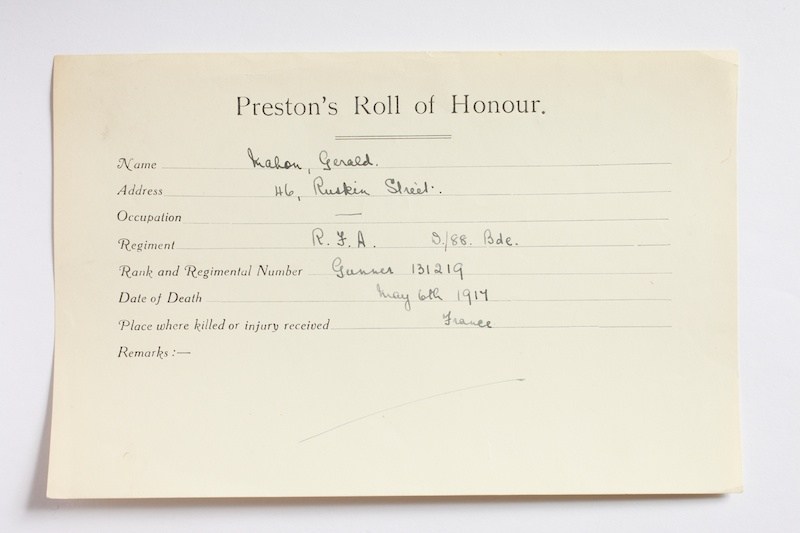 Preston's Roll of Honour.
Name Mahon, Gerald.
Address 46, Ruskin Street.
Occupation —
Regiment R. F. A. D/88. Bde.
Rank and Regimental Number Gunner 131219
Date of Death May 6th 1917
Place where killed or injury received France
Remarks :—